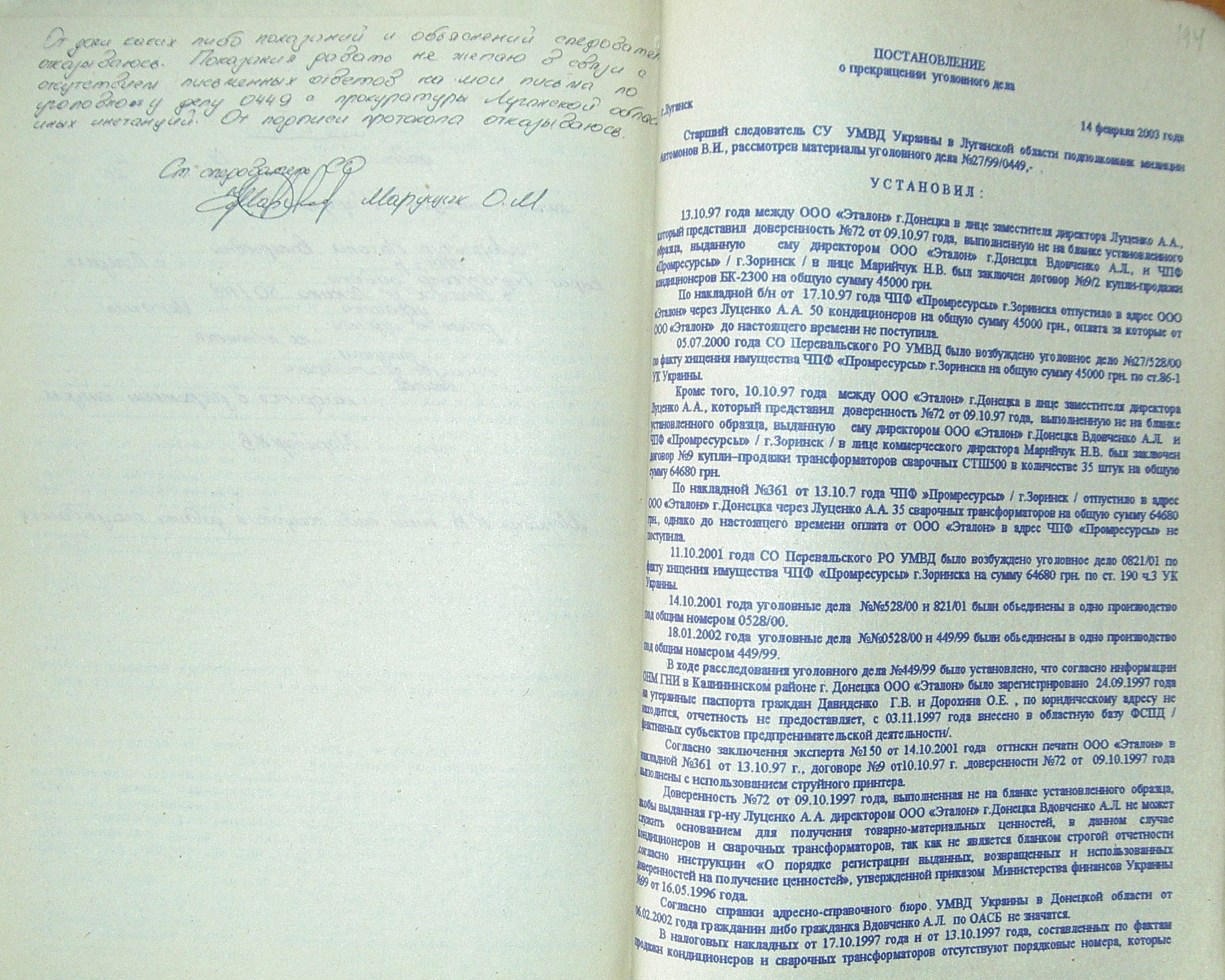 От дачи каких либо показаний и объяснений следователю
отказываюсь. Показания давать не желаю в связи с
отсутствием письменных ответов на мои письма по
уголовному делу 0449 с прокуратуры Луганской облас
иных инстанций. От подписи протокола отказываюсь.
Ст. следователь
Марущак О.М
194
ПОСТАНОВЛЕНИЕ
о прекращении уголовного дела
г.Луганск
14 февраля 2003 года
Старший следователь СУ УМВД Украины в Луганской области подполковник милиции
Автомонов В.И., рассмотрев материалы уголовного дела №27/99/0449,-
УСТАНОВИЛ:
13.10.97 года между ООО «Эталон» г.Донецка в лице заместителя директора Луценко А.А.,
который представил доверенность №72 от 09.10.97 года, выполненную не на бланке установленного
образца, выданную ему директором ООО «Эталон» г.Донецка Вдовченко А.Л., и ЧПФ
«Промресурсы» / г.Зоринск / в лице Марийчук Н.В. был заключен договор №9/2 купли-продажи
кондиционеров БК-2300 на общую сумму 45000 грн.
По накладной б/н от 17.10.97 года ЧПФ «Промресурсы» г.Зоринска отпустило в адрес ООО
«Эталон» через Луценко А.А. 50 кондиционеров на общую сумму 45000 грн., оплата за которые от
ООО «Эталон» до настоящего времени не поступила.
05.07.2000 года СО Перевальского РО УМВД было возбуждено уголовное дело №27/528/00
по факту хищения имущества ЧПФ «Промресурсы» г.Зоринска на общую сумму 45000 грн. по ст.86-1
УК Украины.
Кроме того, 10.10.97 года между ООО «Эталон» г.Донецка в лице заместителя директора
Луценко А.А., который представил доверенность №72 от 09.10.97 года, выполненную не на бланке
установленного образца, выданную ему директором ООО «Эталон» г.Донецка Вдовченко А.Л. и
ЧПФ «Промресурсы» / г.Зоринск / в лице коммерческого директора Марийчук Н.В. был заключен
договор №9 купли–продажи трансформаторов сварочных СТШ500 в количестве 35 штук на общую
сумму 64680 грн.
По накладной №361 от 13.10.7 года ЧПФ »Промресурсы» / г.Зоринск / отпустило в адрес
ООО «Эталон» г.Донецка через Луценко А.А. 35 сварочных трансформаторов на общую сумму 64680
грн., однако до настоящего времени оплата от ООО «Эталон» в адрес ЧПФ «Промресурсы» не
поступила.
11.10.2001 года СО Перевальского РО УМВД было возбуждено уголовное дело 0821/01 по
факту хищения имущества ЧПФ «Промресурсы» г.Зоринска на сумму 64680 грн. по ст. 190 ч.3 УК
Украины.
14.10.2001 года уголовные дела №№528/00 и 821/01 были объединены в одно производство
под общим номером 0528/00.
18.01.2002 года уголовные дела №№0528/00 и 449/99 были объединены в одно производство
под общим номером 449/99.
В ходе расследования уголовного дела №449/99 было установлено, что согласно информации
ОНМ ГНИ в Калининском районе г. Донецка ООО «Эталон» было зарегистрировано 24.09.1997 года
на утерянные паспорта граждан Давиденко Г.В. и Дорохина О.Е. , по юридическому адресу не
находится, отчетность не предоставляет, с 03.11.1997 года внесено в областную базу ФСПД /
фиктивных субъектов предпринимательской деятельности/.
Согласно заключения эксперта №150 от 14.10.2001 года оттиски печати ООО «Эталон» в
накладной №361 от 13.10.97 г., договоре №9 от10.10.97 г. ,доверенности №72 от 09.10.1997 года
выполнены с использованием струйного принтера.
Доверенность №72 от 09.10.1997 года, выполненная не на бланке установленного образца,
якобы выданная гр-ну Луценко А.А. директором ООО «Эталон» г.Донецка Вдовченко А.Л. не может
служить основанием для получения товарно-материальных ценностей, в данном случае
кондиционеров и сварочных трансформаторов, так как не является бланком строгой отчетности
согласно инструкции «О порядке регистрации выданных, возвращенных и использованных
доверенностей на получение ценностей», утвержденной приказом Министерства финансов Украины
№99 от 16.05.1996 года.
Согласно справки адресно-справочного бюро УМВД Украины в Донецкой области от
06.02.2002 года гражданин либо гражданка Вдовченко А.Л. по ОАСБ не значатся.
В налоговых накладных от 17.10.1997 года и от 13.10.1997 года, составленных по фактам
продажи кондиционеров и сварочных трансформаторов отсутствуют порядковые номера, которые